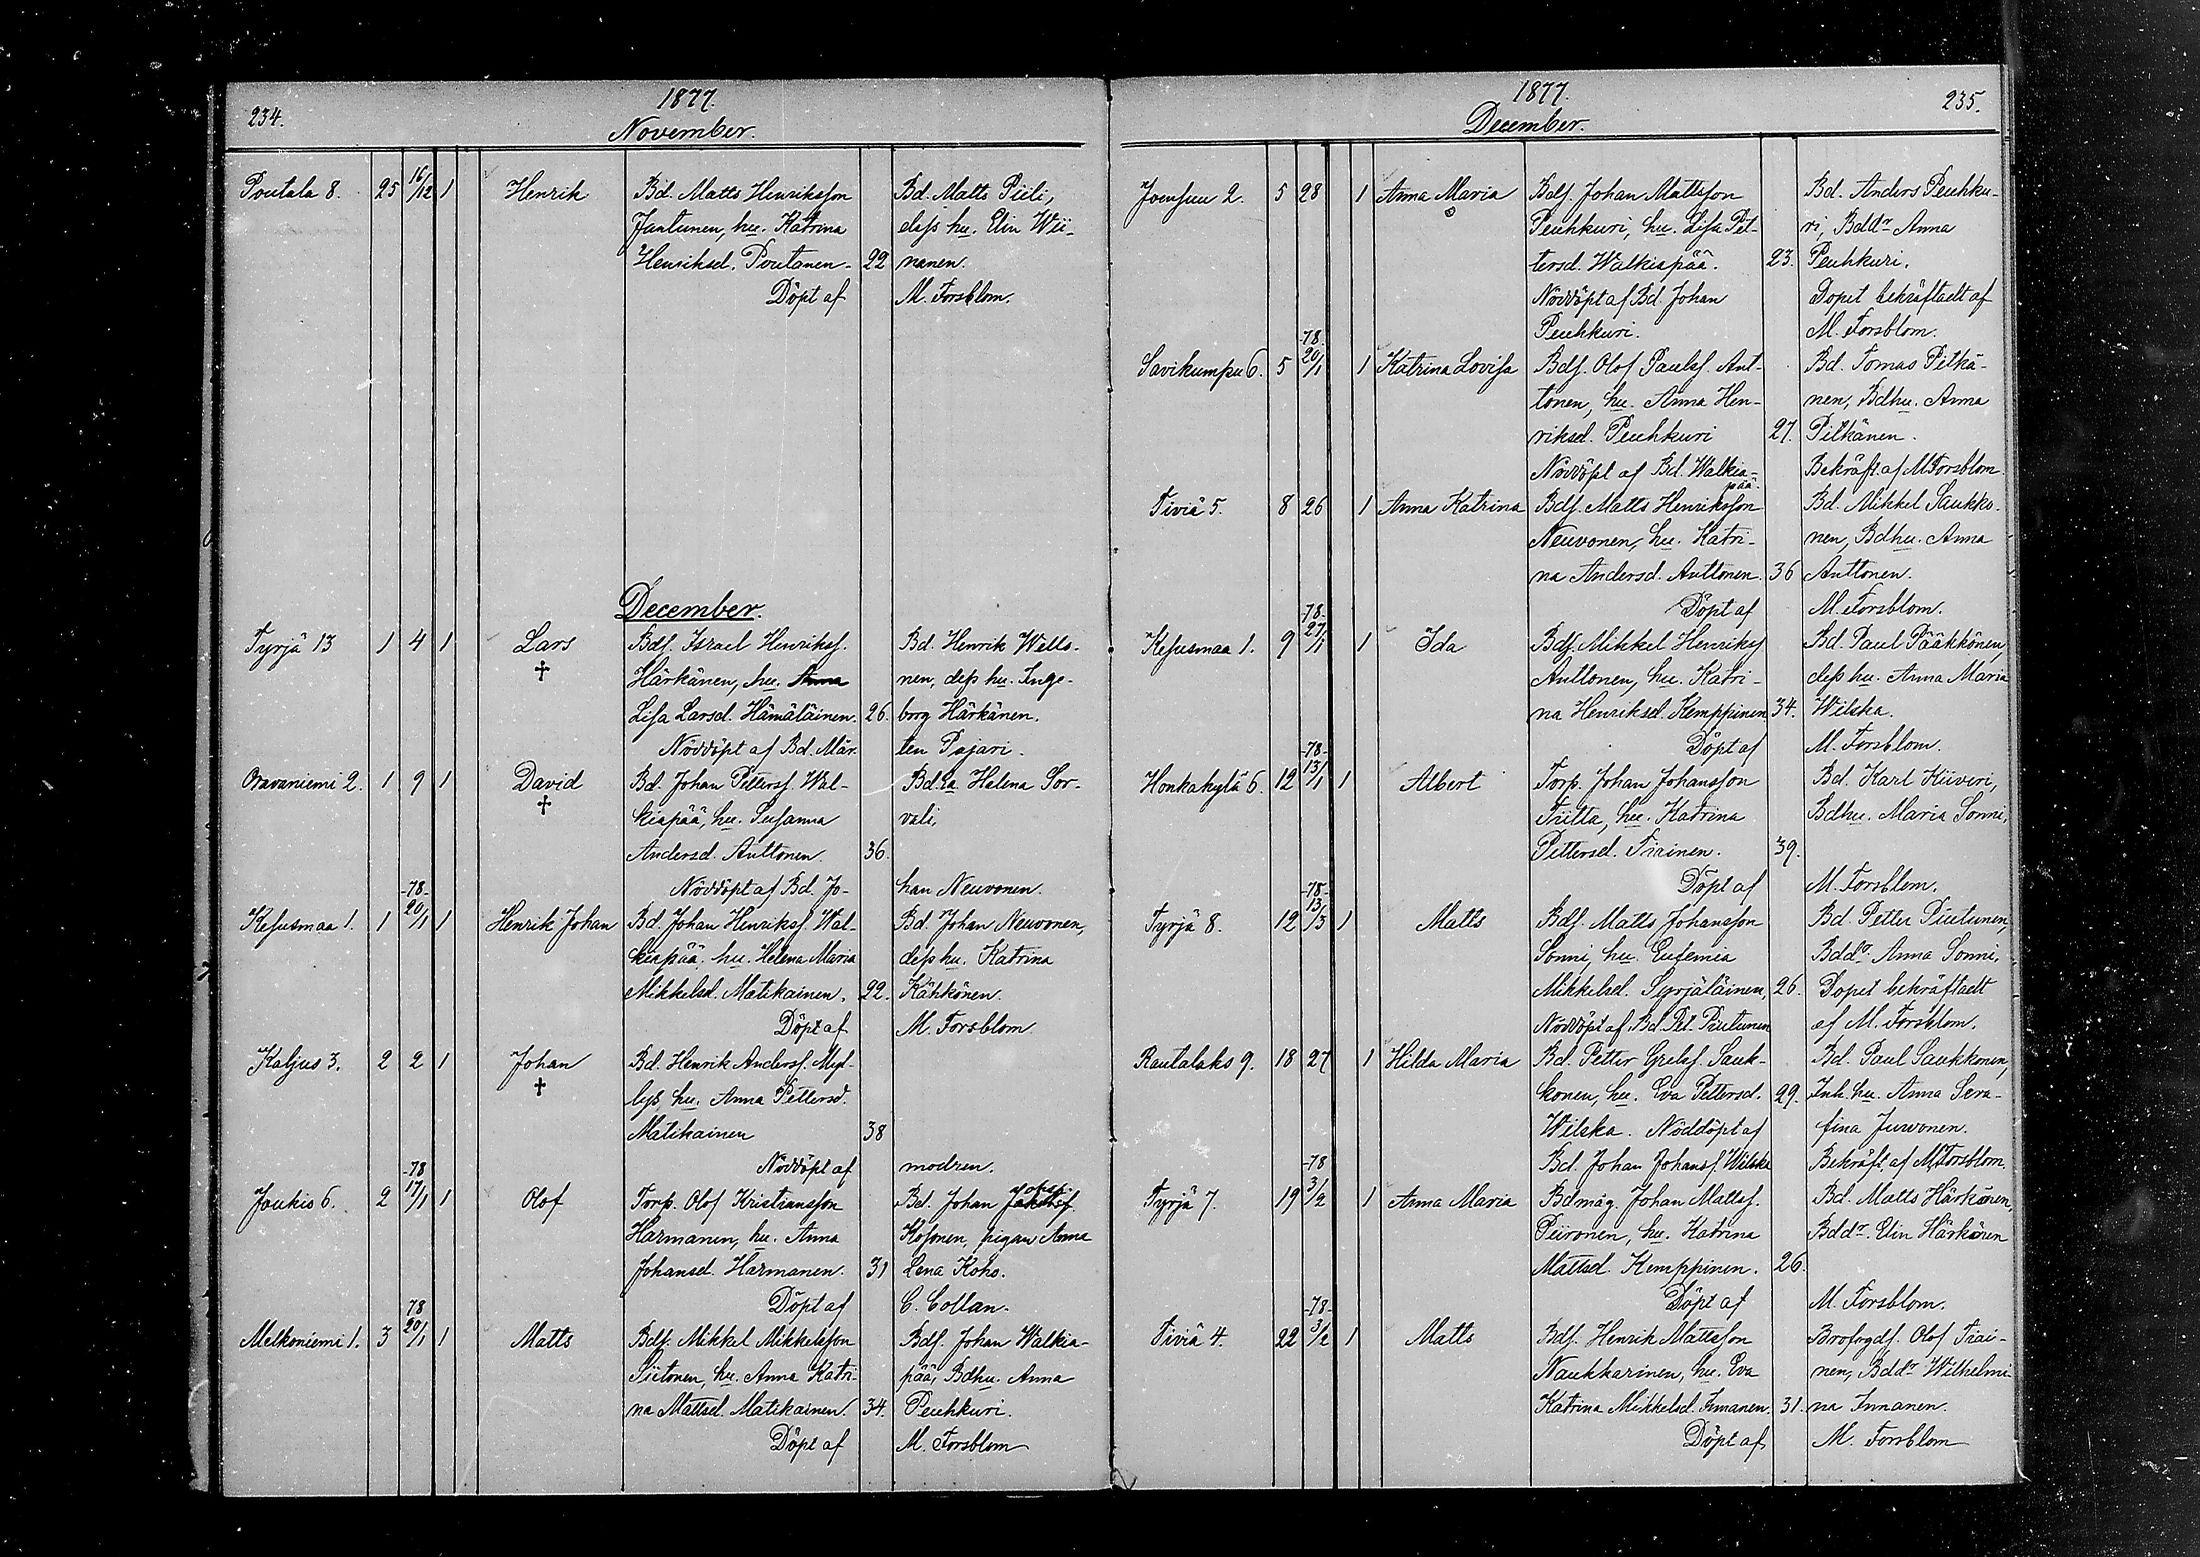 234.
1877.
November.
Poutala 8. 25 16/12 1 Henrik Bd. Matts Henriksson Bd. Matts Piili,
Jantunen, hu. Katrina dess hu. Elin Wii-
Henriksd. Poutanen. 22 nanen.
Döpt af M. Forsblom.
December.
Tyrjä 13 1 4 1 Lars Bdf. Israel Henriksf. Bd. Henrik Wello-
† Härkänen, hu. Anna nen, dess hu. Inge-
Lisa Larsd. Hämäläinen. 26. borg Härkänen.
Nöddöpt af Bd. Mår- ten Pajari.
Oravaniemi 2. 1 9 1 David Bd. Johan Pettersf. Wal- Bd. Helena Sor-
† kiapää, hu. Susanna vali,
Andersd. Anttonen. 36.
Nöddöpt af Bd. Jo- han Neuvonen.
-78-
Kesusmaa 1. 1 20/1 1 Henrik Johan Bd. Johan Henriksf. Wal- Bd. Johan Neuvonen,
kiapää, hu. Helena Maria dess hu. Katrina
Mikkelsd. Matikainen. 22. Kähkönen.
Döpt af M. Forsblom
Kaljus 3. 2 2 1 Johan Bd. Henrik Andersf. Myl-
† lys hu. Anna Pettersd.
Matikainen 38
Nöddöpt af modren.
-78
Joukio 6. 2 17/1 1 Olof Torp. Olof Kristiansson Bd. Johan
Harmanen, hu. Anna Kosonen, pigan Anna
Johansd. Harmanen. 31 Lena Koho.
Döpt af C. Collan.
78
Melkoniemi 1. 3 20/1 1 Matts Bdf. Mikkel Mikkelsson Bdf. Johan Walkia-
Siitonen, hu. Anna Katri- pää, Bdhu. Anna
na Mattsd. Matikainen. 34. Peuhkuri.
Döpt af M. Forsblom
1877.
December.
235.
Joensuu 2. 5 28 1 Anna Maria Bdf. Johan Mattsson Bd. Anders Peuhku-
Peuhkuri, hu. Lisa Pet- ri, Bddr Anna
tersd. Walkiapää. 23. Peuhkuri.
Nöddöpt af Bd. Johan Dopet bekräftadt af
Peuhkuri. M. Forsblom.
-78.
Savikumpu 6. 5 20/1 1 Katrina Lovisa Bdf. Olof Paulsf. Ant- Bd. Tomas Pitkä-
tonen, hu. Anna Hen- nen, Bdhu. Anna
riksd. Peuhkuri 27. Pitkänen.
Nöddöpt af Bd. Walkia- Bekräft. af M. Forsblom
pää.
Tiviä 5. 8 26 1 Anna Katrina Bdf. Matts Henriksson Bd. Mikkel Saukko-
Neuvonen, hu. Katri- nen, Bdhu. Anna
na Andersd. Anttonen. 36 Anttonen.
Döpt af M. Forsblom.
-78-
Kesusmaa 1. 9 27/1 1 Ida Bdf. Mikkel Henriksf Bd. Paul Pääkkönen,
Anttonen, hu. Katri- dess hu. Anna Maria
na Henriksd. Kemppinen 34. Wilska.
Döpt af M. Forsblom.
-78-
Honkakylä 6. 12 13/1 1 Albert Torp. Johan Johansson Bd. Karl Kiiveri,
Tiitta, hu. Katrina Bdhu. Maria Sonni,
Pettersd. Tiainen. 39.
Döpt af M. Forsblom.
-78-
Tyrjä 8. 12 13/3 1 Matts Bdf. Matts Johansson Bd. Petter Piutunen,
Sonni, hu. Eufemia Bddr Anna Sonni.
Mikkelsd. Syrjäläinen, 26. Dopet bekräftadt
Nöddöpt af Bd. Pet. Piutunen af M. Forsblom.
Rautalaks 9. 18 27 1 Hilda Maria Bd. Petter Grelsf. Sauk- Bd. Paul Saukkonen,
konen, hu. Eva Pettersd. 29. Inh. hu. Anna Sera-
Wilska. Nöddöpt af fina Juvonen.
Bd. Johan Johansf. Wilska Bekräft. af M. Forsblom.
-78
Tyrjä 7. 19 3/2 1 Anna Maria Bdmåg. Johan Mattsf. Bd. Matts Härkänen,
Piironen, hu. Katrina Bddr. Elin Härkänen
Mattsd. Kemppinen. 26.
Döpt af M. Forsblom.
-78-
Tiviä 4. 22 3/2 1 Matts Bdf. Henrik Mattsson Brofogdf. Olof Tiai-
Naukkarinen, hu. Eva nen, Bddr Wilhelmi-
Katrina Mikkelsd. Immanen. 31. na Immanen.
Döpt af M. Forsblom